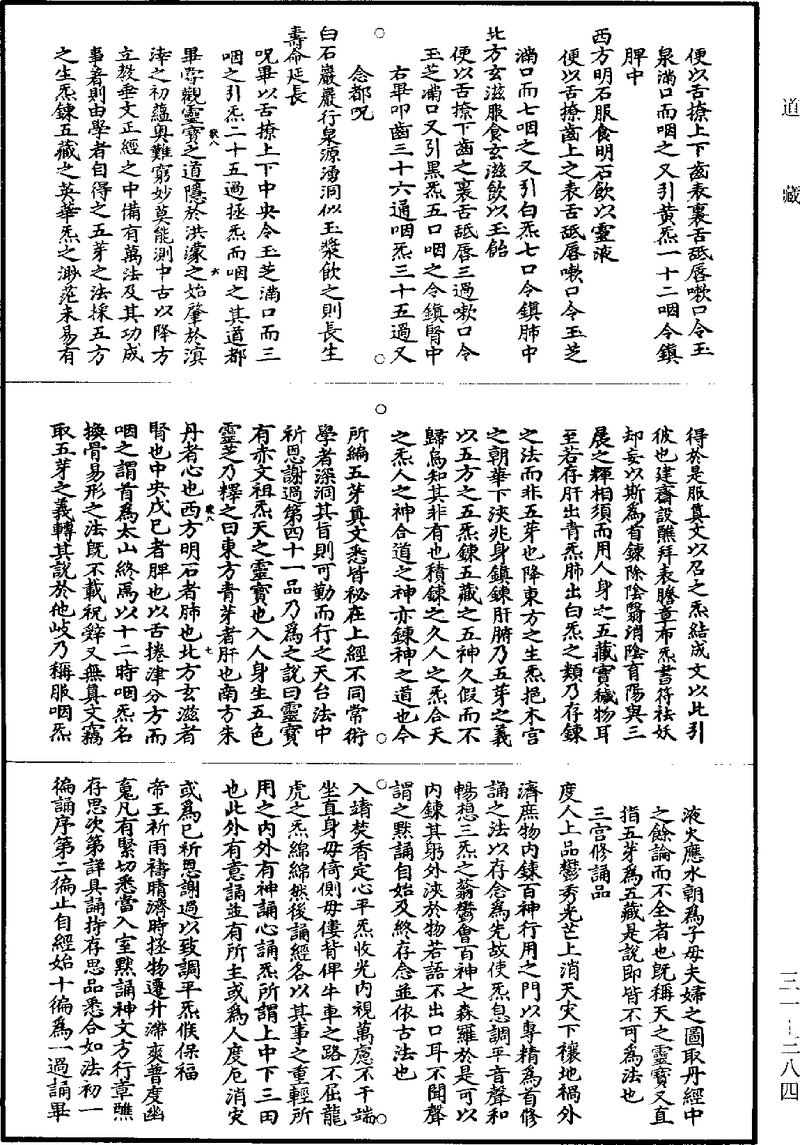 道藏
便以舌撩上下齒表裏舌舐唇嗽口令玉
泉滿口而咽之又引黃炁一十二咽令鎮
脾中
西方明石服食明石飲以靈液
便以舌撩齒上之表舌舐唇嗽口令玉芝
滿口而七咽之又引白炁七口令鎮肺中
北方玄滋服食玄滋飲以玉飴
便以舌撩下齒之裏舌舐唇三過嗽口令
玉芝滿口又引黑炁五口咽之令鎮腎中
右畢叩齒三十六通咽炁三十五過又
念都呪
白石巖巖行泉源湧洞似玉漿飲之則長生
壽命延長
呪畢以舌撩上下中央令玉芝滿口而三
咽之引炁二十五過拯炁而咽之其道都
畢嘗觀靈寶之道隱於洪濛之始肇於溟
涬之初蘊奧難窮妙莫能測中古以降方
立教垂文正經之中備有萬法及其功成
事著則由學者自得之五芽之法採五方
之生炁鍊五藏之英華炁之渺茫未易有
得於是服真文以召之炁結成文以此引
彼也建齋設醮拜表騰章布炁書符祛妖
却妄以斯為有鍊除陰翳消陰育陽與三
晨之輝相須而用人身之五藏實穢物耳
至若存肝出青炁肺出白炁之類乃存鍊
之法而非五芽也降東方之生炁挹木宮
之朝華下浹兆身鎮鍊肝腑乃五芽之義
以五方之五炁鍊五藏之五神久假而不
歸烏知其非有也積鍊之久人之炁合天
之炁人之神合道之神亦鍊神之道也今
所編五芽真文悉皆祕在上經不同常術
學者深洞其旨則可勤而行之天台法中
祈恩謝過第四十一品乃為之說曰靈寶
有赤文祖炁天之靈寶也入人身生五色
靈芝乃釋之曰東方青芽者肝也南方朱
丹者心也西方明石者肺也北方玄滋者
腎也中央戊巳者脾也以舌捲津分方而
咽之謂首為太山終焉以十二時咽炁名
換骨易形之法既不載祝辭又無真文竊
取五芽之義轉其說於他歧乃稱服咽炁
液火應水朝為子母夫婦之圖取丹經中
之餘論而不全者也既稱天之靈寶又直
指五芽為五藏是說即皆不可為法也
三宮修誦品
度人上品鬱秀光芒上消天災下禳地禍外
濟庶物內鍊百神行用之門以專精為首修
誦之法以存念為先故使炁息調平音聲和
暢想三炁之蓊鬱會百神之森羅於是可以
內鍊其躬外浹於物若語不出口耳不聞聲
謂之默誦自始及終存念並依古法也
入靖焚香定心平炁收光內視萬慮不干端
坐直身毋倚側毋僂背俾牛車之路不屈龍
虎之炁綿綿然後誦經各以其事之重輕所
用之內外有神誦心誦炁所謂上中下三田
也此外有意誦並有所主或為人度厄消災
或為已祈恩謝過以致調平炁候保福
帝王祈雨禱晴濟時拯物遷升滯爽普度幽
冤凡有緊切悉當入室默誦神文方行章醮
存思次第詳具誦持存思品悉合如法初一
徧誦序第二徧止自經始十徧為一過誦畢
三一-三八四